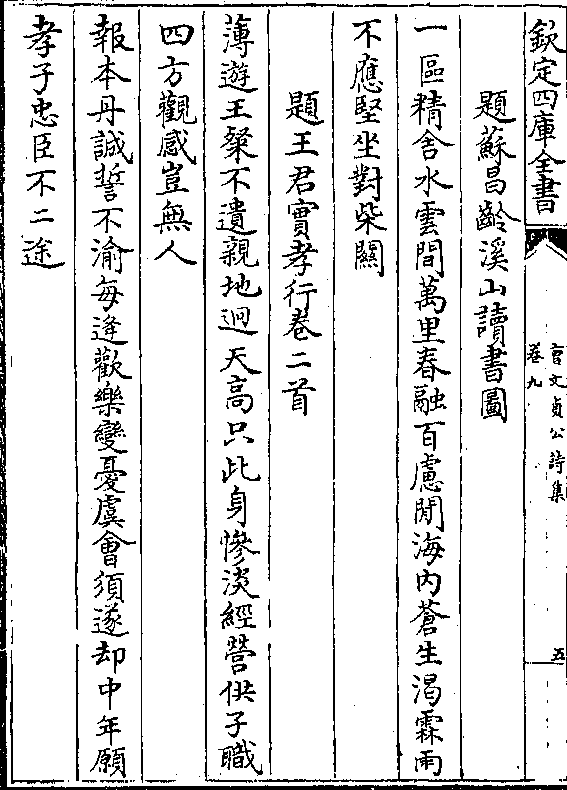 欽定四庫全書
宫文貞公詩集
卷九
五
題蘇昌齡溪山讀書圖
一區精舍水雲間萬里春融百慮閒海内蒼生渴霖雨
不應堅坐對柴關
題王君實孝行卷二首
薄遊王粲不遺親地迥天高只此身慘淡經營供子職
四方觀感豈無人
報本丹誠誓不渝每逢歡樂變憂虞會須遂却中年願
孝子忠臣不二途